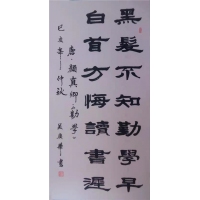 黑髮不知勤學早
白首方悔讀書遲
唐·顏真卿《勸學》
仲秋
書